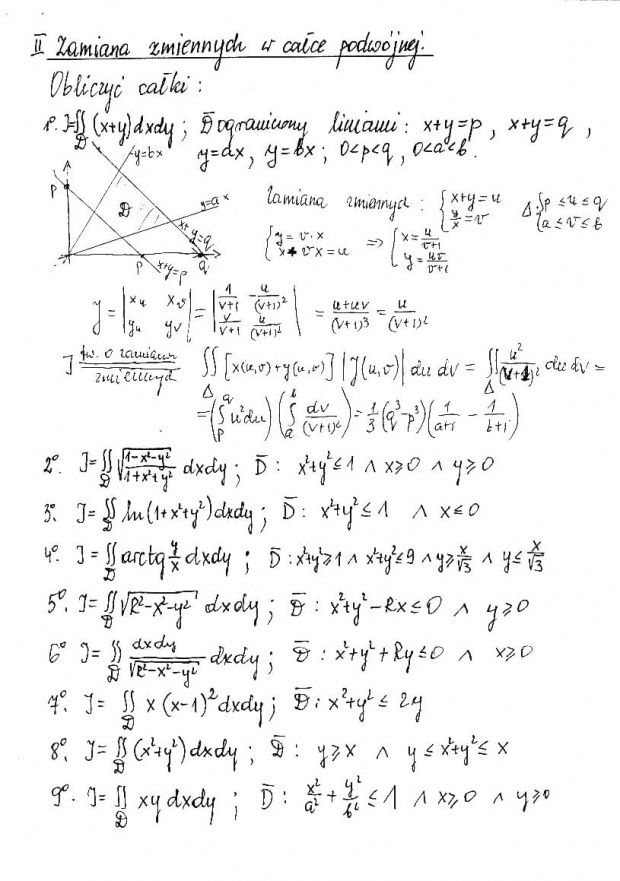 II Zamiana zmiennych w całce podwójnej.
Obliczyć całki:
1°. J=∬_D (x+y)dxdy ; D̄ ograniczony liniami: x+y=p, x+y=q,
y=ax, y=bx ; 0<p<q, 0<a<b.
y=bx
p
D
y=ax
x+y=q
p
x+y=p
q
Zamiana zmiennych: { x+y=u ; y/x=v
Δ: { p≤u≤q ; a≤v≤b
{ y=v·x ; x+vx=u => { x=u/(v+1) ; y=uv/(v+1)
J = | x_u x_v ; y_u y_v | = | 1/(v+1) -u/(v+1)² ; v/(v+1) u/(v+1)² | = (u+uv)/(v+1)³ = u/(v+1)²
J tw. o zamianie zmiennych ∬_Δ [x(u,v)+y(u,v)] |J(u,v)| du dv = ∬_Δ u²/(v+1)² du dv =
= (∫_p^q u²du)(∫_a^b dv/(v+1)²) = 1/3 (q³-p³)(1/(a+1) - 1/(b+1))
2°. J=∬_D √((1-x²-y²)/(1+x²+y²)) dxdy ; D̄: x²+y²≤1 ∧ x≥0 ∧ y≥0
3°. J=∬_D ln(1+x²+y²)dxdy ; D̄: x²+y²≤1 ∧ x≤0
4°. J=∬_D arctg y/x dxdy ; D̄: x²+y²≥1 ∧ x²+y²≤9 ∧ y≥x/√3 ∧ y≤x/√3
5°. J=∬_D √(R²-x²-y²) dxdy ; D̄: x²+y²-Rx≤0 ∧ y≥0
6° J=∬_D dxdy/√(R²-x²-y²) dxdy ; D̄: x²+y²+Ry≤0 ∧ x≥0
7°. J=∬_D x(x-1)²dxdy ; D̄: x²+y²≤2y
8°. J=∬_D (x²+y²)dxdy ; D̄: y≥x ∧ y≤x²+y²≤x
9°. J=∬_D xy dxdy ; D̄: x²/a²+y²/b²≤1 ∧ x≥0 ∧ y≥0